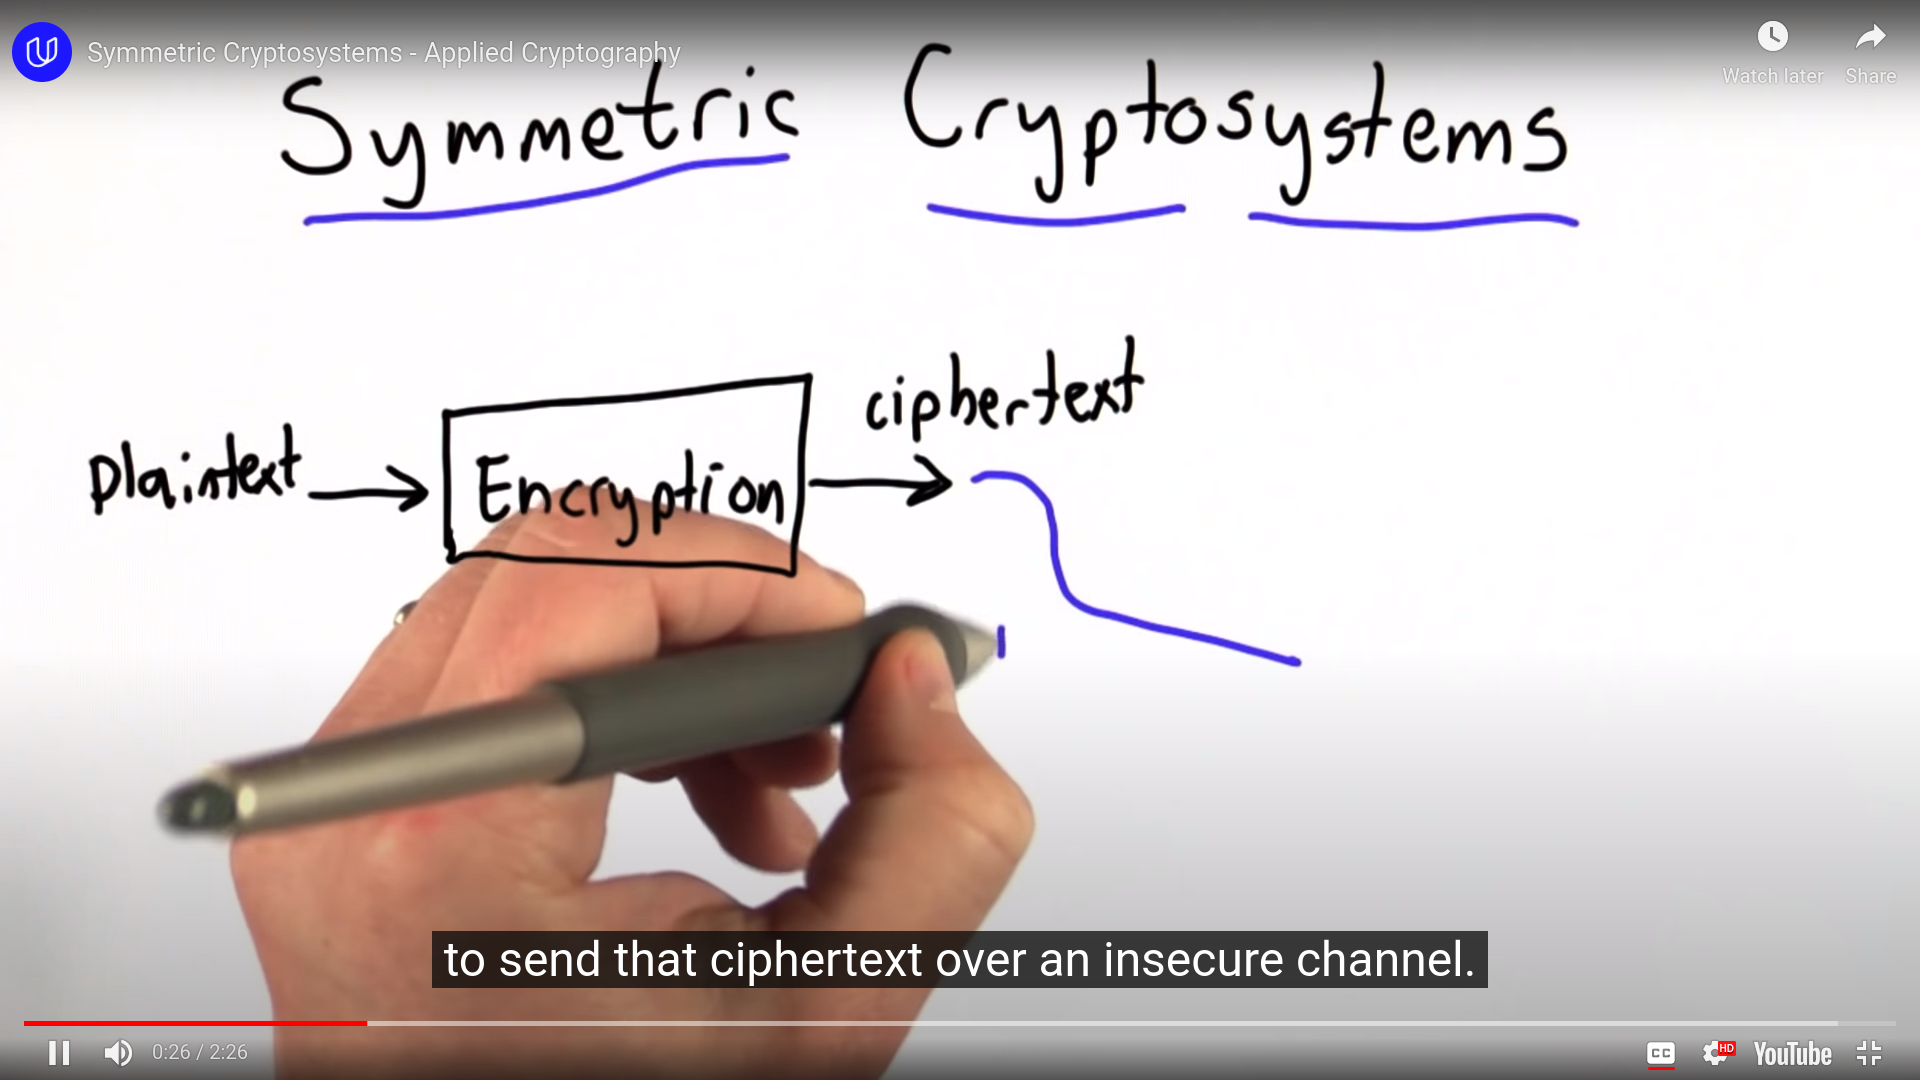 Symmetric Cryptosystems - Applied Cryptography
Watch later
Share
Symmetric Cryptosystems
ciphertext
plaintext
Encryption
to send that ciphertext over an insecure channel.
0:26 / 2:26
CC
HD
YouTube